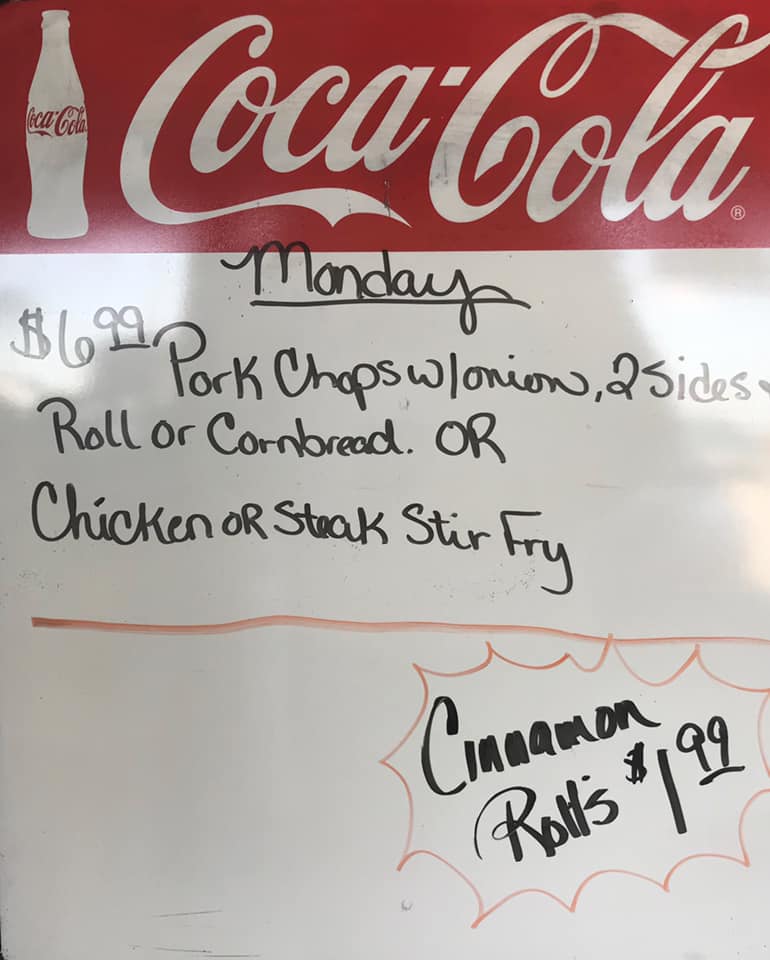 Coca-Cola
Coca-Cola®
Monday
$6.99 Pork Chops w/onion, 2 Sides
Roll or Cornbread. OR
Chicken OR Steak Stir Fry
Cinnamon
Roll's $1.99